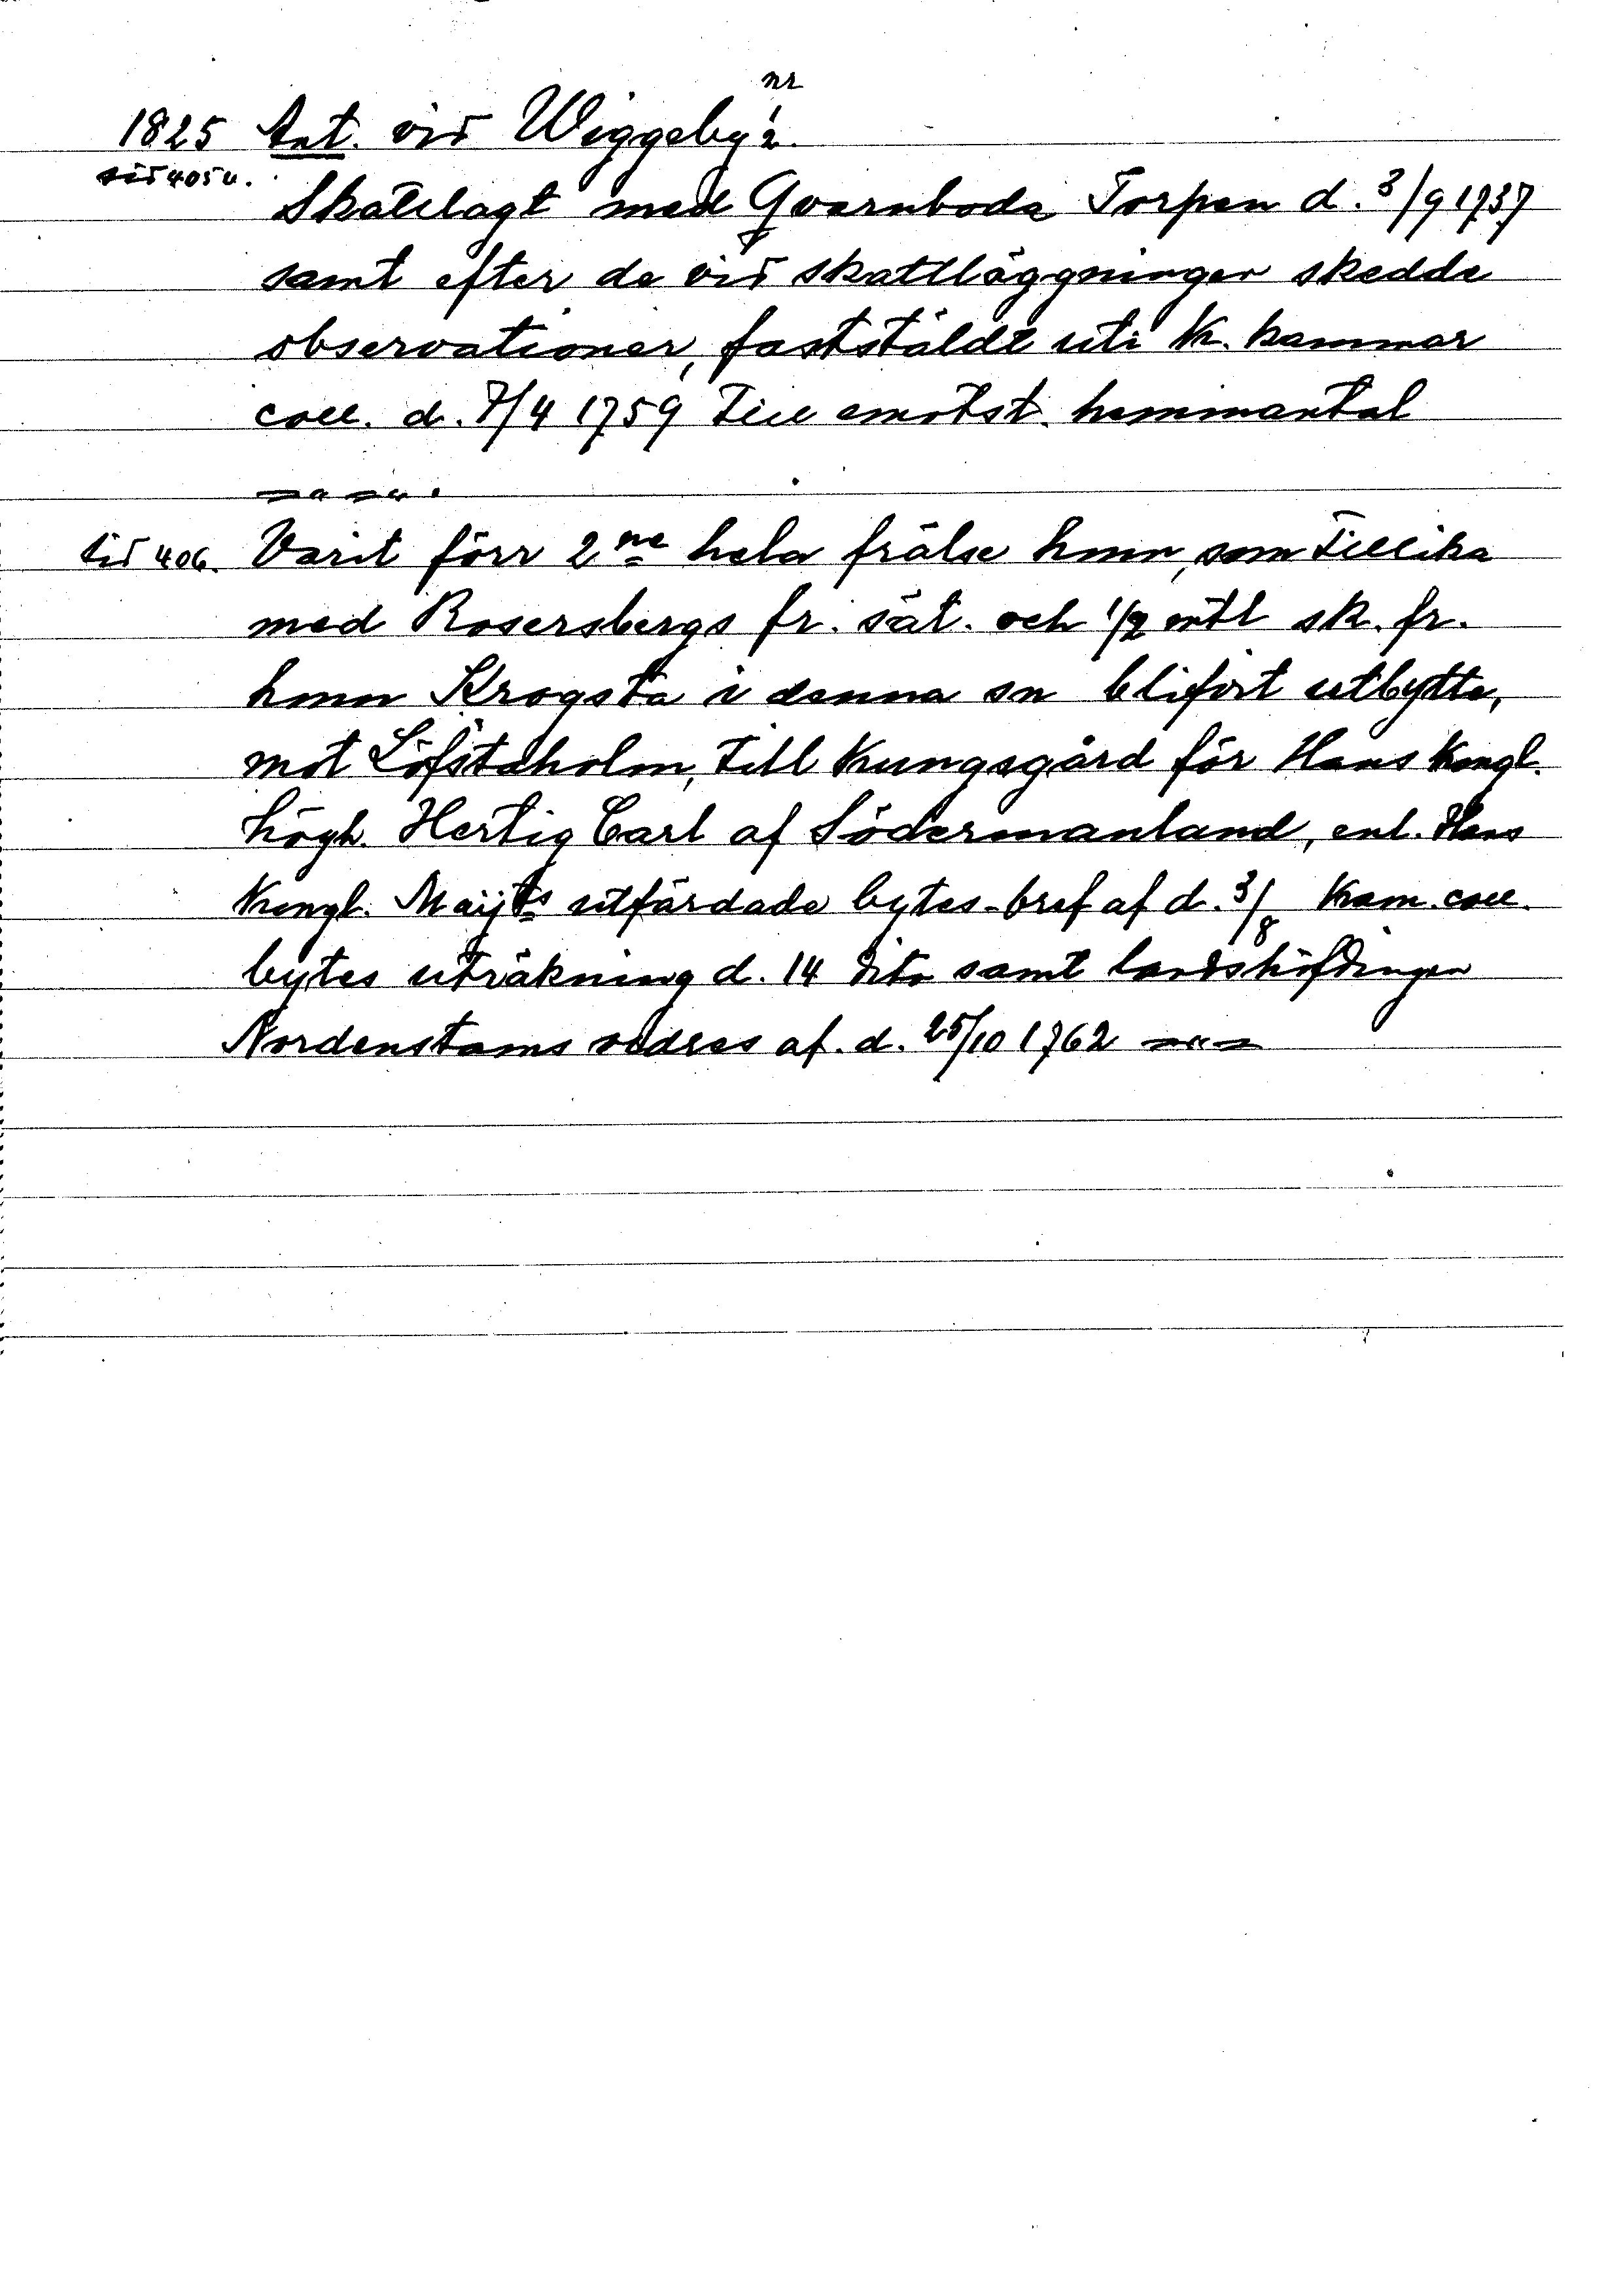 nr
1825 Ant. vid Wiggeby 2.
sid 405 u.
Skattlagt med Qvarnboda Torpen d. 3/9 1737
samt efter de vid skattläggningen skedde
observationer, fastställdt uti K. kammar
coll. d. 7/4 1759 Till emotst. hemmantal
sid 406. Varit förr 2ne hela frälse hmn, som tillika
med Rosersbergs fr. sät. och 1/2 mtl sk. fr.
hmn Krogsta i denna sn blifvit utbytte,
mot Löfstaholm, till Kungsgård för Hans Kongl.
högh. Hertig Carl af Södermanland, enl. Hans
Kongl. Maijts utfärdade bytes-bref af d. 3/8 Kam. coll.
bytes uträkning d. 14 dito samt landshöfdingen
Nordenstams af. d. 25/10 1762